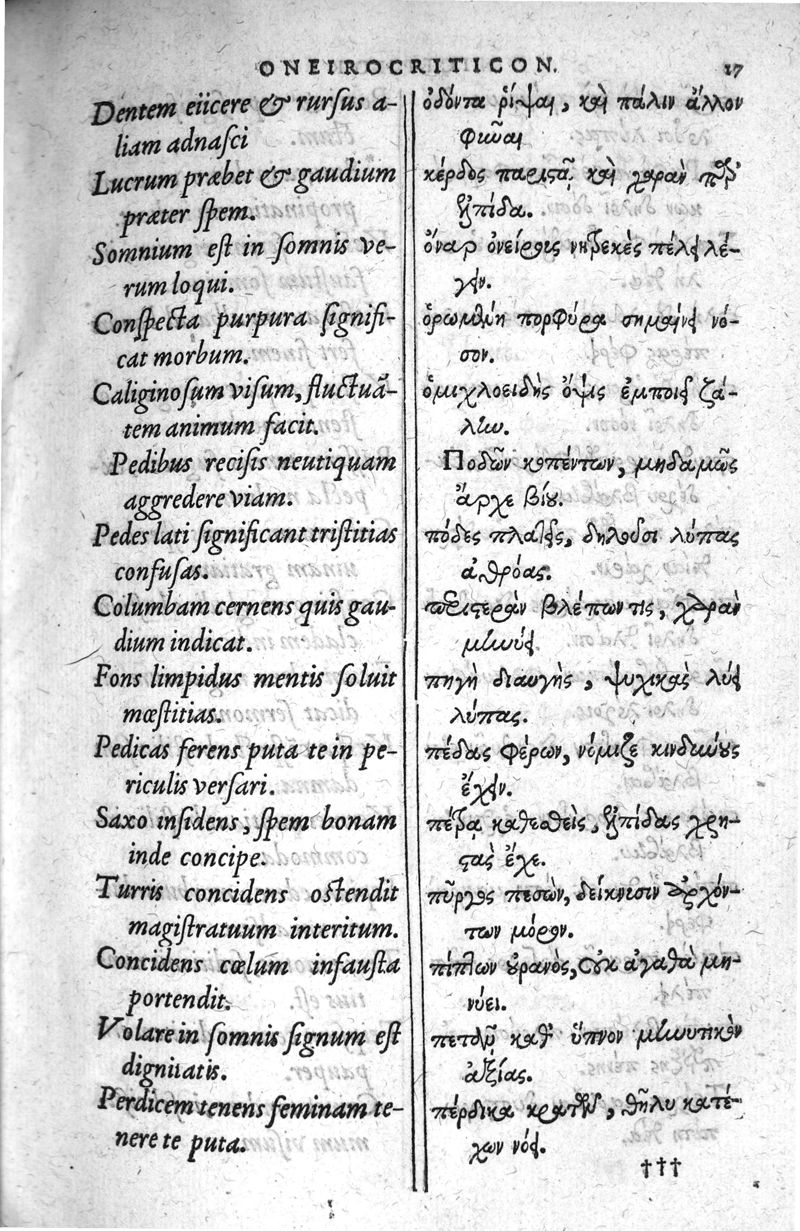 ONEIROCRITICON. 17
Dentem eiicere & rursus a-
liam adnasci
Lucrum præbet & gaudium
præter spem.
Somnium est in somnis ve-
rum loqui.
Conspecta purpura signifi-
cat morbum.
Caliginosum visum, fluctuã-
tem animum facit.
Pedibus recisis neutiquam
aggredere viam.
Pedes lati significant tristitias
confusas.
Columbam cernens quis gau-
dium indicat.
Fons limpidus mentis soluit
mœstitias.
Pedicas ferens puta te in pe-
riculis versari.
Saxo insidens, spem bonam
inde concipe.
Turris concidens ostendit
magistratuum interitum.
Concidens cœlum infausta
portendit.
Volare in somnis signum est
dignitatis.
Perdicem tenens feminam te-
nere te puta.
ὀδόντα ῥίψαι, καὶ πάλιν ἄλλον
φιῶαι
κέρδος παριστᾷ καὶ χαρὰν παρ'
ἐλπίδα.
ὄναρ ὀνείροις νητρεκὲς πέλει λέ-
γειν.
ὁρωμένη πορφύρα σημαίνει νό-
σον.
ὁμιχλοειδὴς ὄψις ἐμποιεῖ ζά-
λην.
Ποδῶν κοπέντων, μηδαμῶς
ἄρχε βίου.
πόδες πλατεῖς, δηλοῦσι λύπας
ἀθρόας.
περιστερὰν βλέπων τις, χαρὰν
μηνύει.
πηγὴ διαυγὴς, ψυχικὰς λύει
λύπας.
πέδας φέρων, νόμιζε κινδύνους
ἔχειν.
πέτρᾳ καθεσθεὶς, ἐλπίδας χρη-
στὰς ἔχε.
πῦργος πεσὼν, δείκνυσιν ἀρχόν-
των μόρον.
πίπτων οὐρανὸς, οὐκ ἀγαθὰ μη-
νύει.
πετᾶσθαι καθ' ὕπνον μηνυτικὸν
ἀξίας.
πέρδικα κρατῶν, θῆλυ κατέ-
χων νόει.
†††